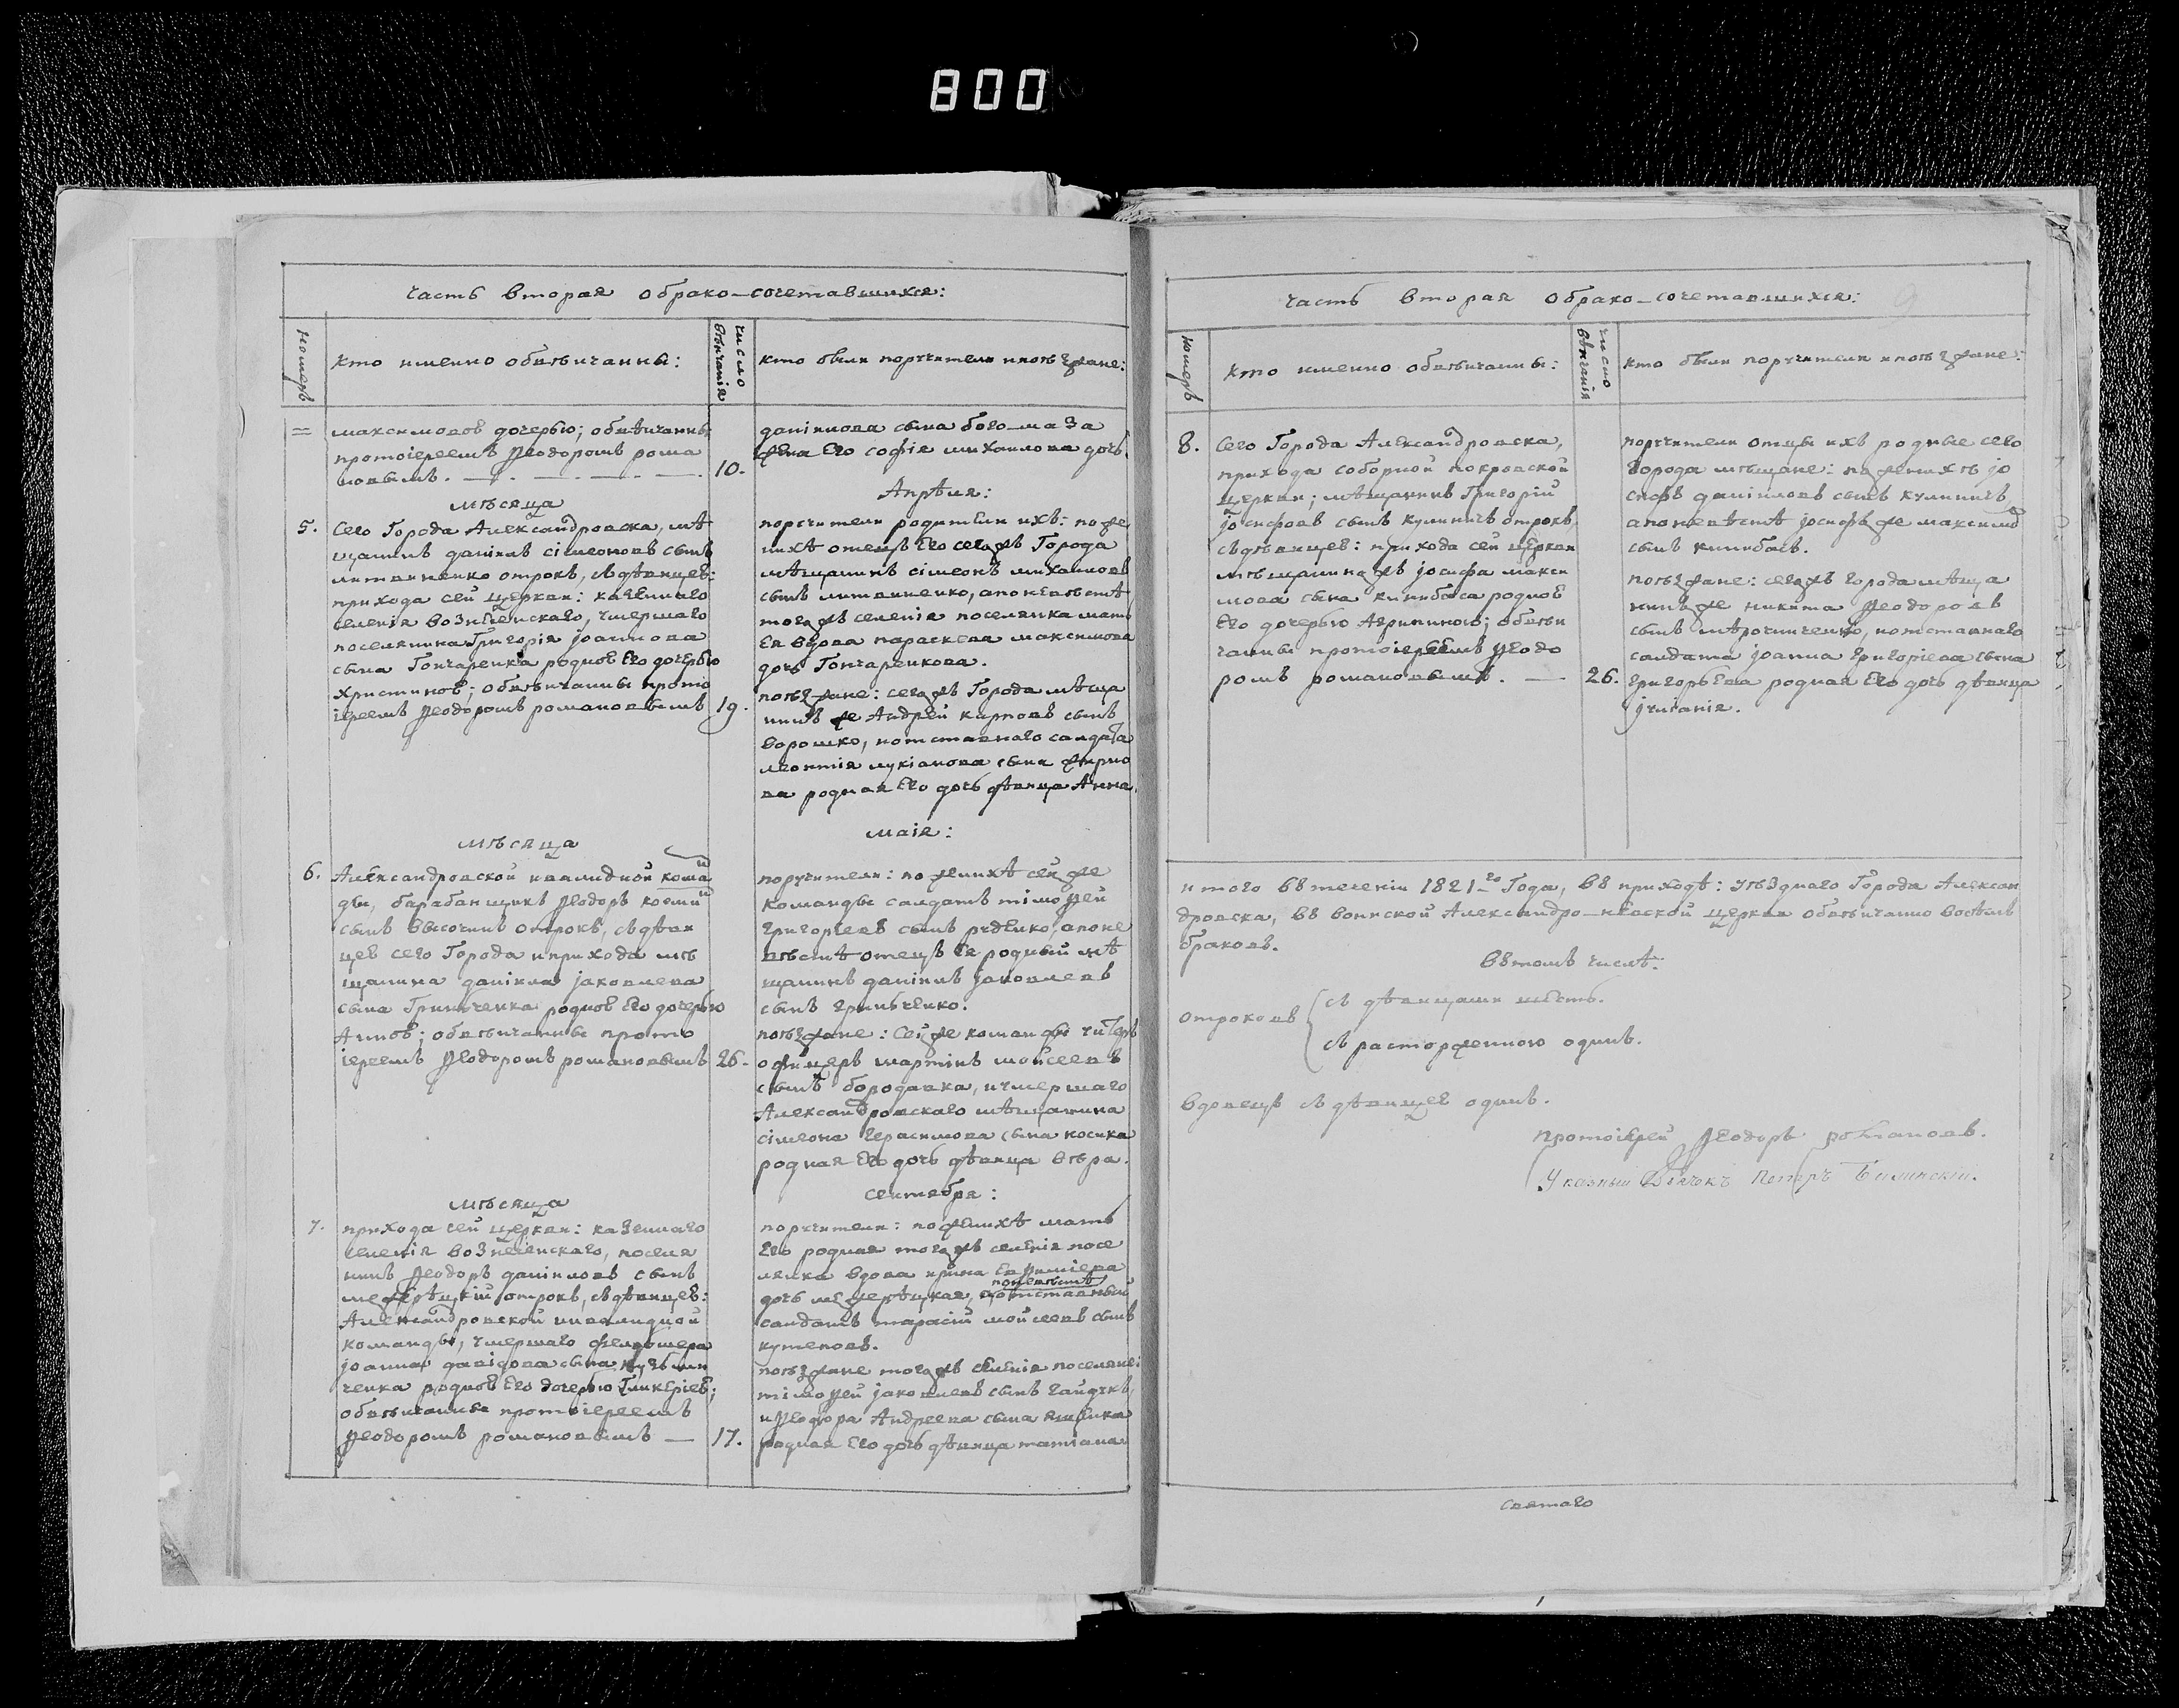 800
часть вторая о брако-сочетавшихся:
номеръ
кто именно обвѣнчанны:
число вѣнчанія
кто были поручители и поѣзжане:
= максимовою дочерью; обвѣнчанны
протоіереемъ Ѳеодоромъ рома
новымъ. 10.
даніилова сына бого-маза
жена Его софія михаилова дочь.
мѣсяца Апрѣля:
5. Сего Города Александровска, мѣ
щанинъ даніилъ сімеоновъ сынъ
литвиненко отрокъ, съ дѣвицею:
прихода сей церкви: казеннаго
селенія вознесенскаго, умершаго
поселянина Григорія іоаннова
сына Гончаренка родною Его дочерью
христиною; обвѣнчанны прото
іереемъ Ѳеодоромъ романовымъ 19.
поручители родители ихъ: по же
нихѣ отецъ Его сего жъ Города
мѣщанинъ сімеонъ михаиловъ
сынъ литвиненко, а по невѣстѣ
того жъ селенія поселянка мать
Ея вдова параскева максимова
дочь Гончаренкова.
поѣзжане: сего жъ Города мѣща
нинъ же Андрей карповъ сынъ
ворошко, и отставнаго салдата
леонтія лукіанова сына
ва родная Его дочь дѣвица Анна.
мѣсяца маія:
6. Александровской инвалидной коман
ды, барабанщикъ Ѳеодоръ космин
сынъ высочинъ отрокъ, съ дѣви
цею сего Города и прихода мѣ
щанина даніила іаковлева
сына Гринченка родною Его дочерью
Анною; обвѣнчанны прото
іереемъ Ѳеодоромъ романовымъ 26.
поручители: по женихѣ сей же
команды салдатъ тімоѳей
григоріевъ сынъ руденко, а по не
вѣстѣ отецъ Ея родный мѣ
щанинъ даніилъ іаковлевъ
сынъ гринченко.
поѣзжане: Сей же команды унтеръ
офицеръ мартинъ мойсеевъ
сынъ бородавка, и умершаго
Александровскаго мѣщанина
сімеона герасимова сына носика
родная Его дочь дѣвица вѣра.
мѣсяца сентября:
7. прихода сей церкви: казеннаго
селенія вознесенскаго, поселя
нинъ Ѳеодоръ даніиловъ сынъ
межерѣцкій отрокъ, съ дѣвицею:
Александровской инвалидной
команды, умершаго фелдшера
іоанна давідова сына кузьмин
ченка родною Его дочерью Гликеріею;
обвѣнчанны протоіереемъ
Ѳеодоромъ романовымъ — 17.
поручители: по женихѣ мать
Его родная того жъ селенія посе
лянка вдова ирина Евѳиміева
дочь межерѣцкая, по невѣстѣ отставный
салдатъ тарасій мойсеевъ сынъ
кутеповъ.
поѣзжане того жъ селенія поселяне:
тімоѳей іаковлевъ сынъ гайдукъ,
и Ѳеодора Андреева сына ященка
родная Его дочь дѣвица татіана.
часть вторая о брако-сочетавшихся:
номеръ
кто именно обвѣнчанны:
число вѣнчанія
кто были поручители и поѣзжане:
8. Сего Города Александровска,
прихода соборной покровской
церкви; мѣщанинъ Григорій
іосифовъ сынъ кулиничъ отрокъ,
съ дѣвицею: прихода сей церкви
мѣщанина жъ іосифа макси
мова сына кинибаса родною
Его дочерью Агрипиною; обвѣн
чанны протоіереемъ Ѳеодо
ромъ романовымъ. — 26.
поручители отцы ихъ родные сего
Города мѣщане: по женихѣ іо
сифъ даніиловъ сынъ кулиничъ,
а по невѣстѣ іосифъ же максимов
сынъ кинибасъ.
поѣзжане: сего жъ города мѣща
нинъ же никита Ѳеодоровъ
сынъ мѣрочниченко, и отставнаго
салдата іоанна григоріева сына
григорьева родная Его дочь дѣвица
іуліанія.
итого въ теченіи 1821-го Года, въ приходѣ: уѣзднаго Города Алексан
дровска, въ воинской Александро-невской церкви обвѣнчанно восемь
браковъ.
въ томъ числѣ:
отроковъ съ дѣвицами шесть.
съ расторженною одинъ.
вдовецъ съ дѣвицею одинъ.
протоіерей Ѳеодоръ романовъ.
Указный Дьячокъ Петеръ Билинскій.
святаго